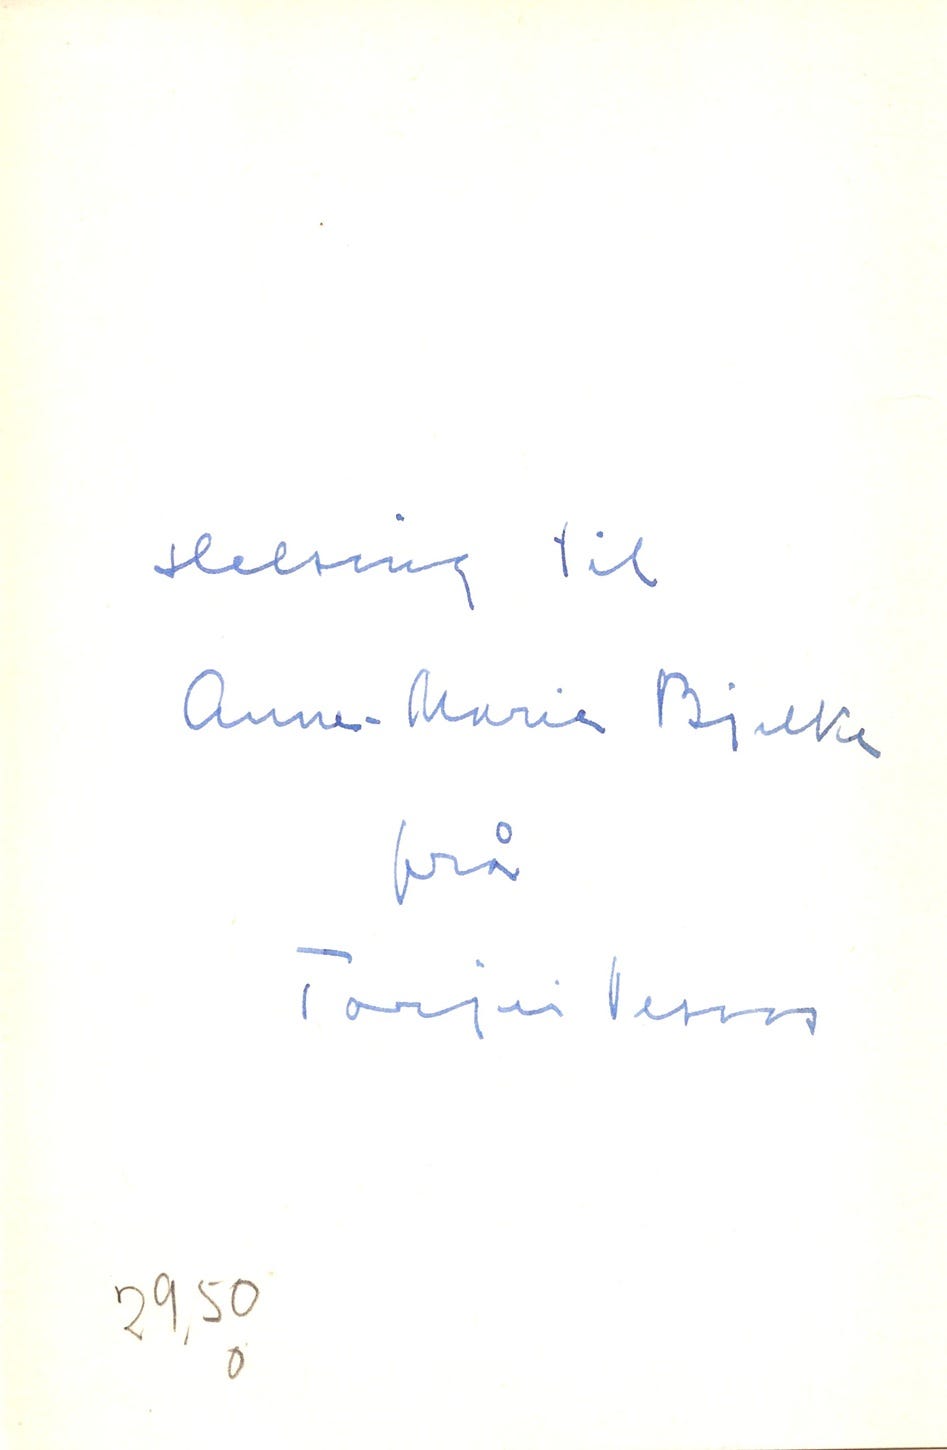 Helsing til
Anne-Marie Bjelke
frå
Tarjei Vesaas
29,50
0